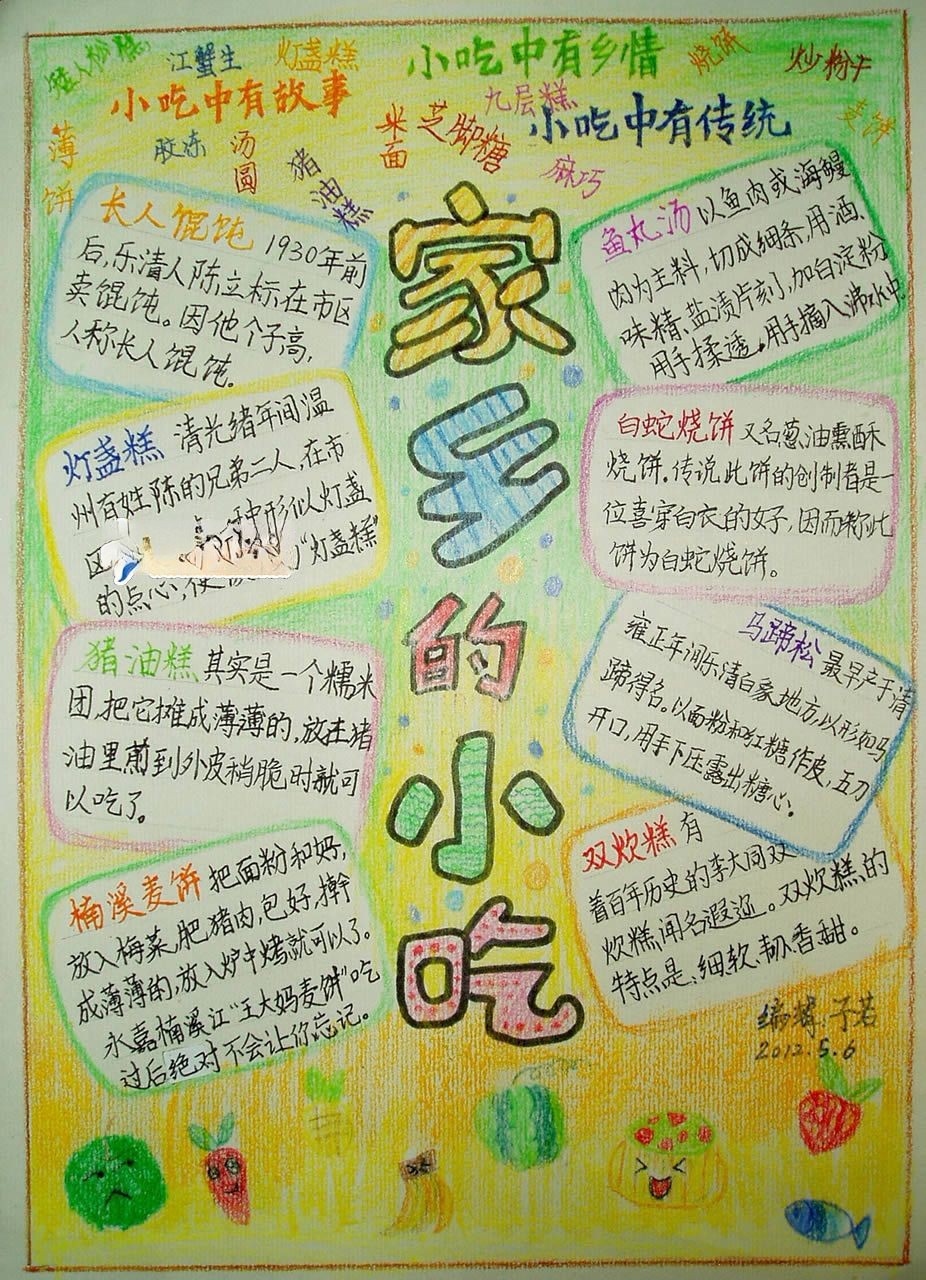 矮人松糕
江蟹生
灯盏糕
小吃中有乡情
烧饼
炒粉干
小吃中有故事
九层糕
麦饼
薄饼
胶冻
汤圆
猪油糕
米面
芝脚糖
小吃中有传统
麻巧
家乡的小吃
长人馄饨 1930年前
后,乐清人陈立标,在市区
卖馄饨。因他个子高,
人称长人馄饨。
灯盏糕 清光绪年间温
州有姓陈的兄弟二人,在市
区 种形似灯盏
的点心, "灯盏糕"
猪油糕 其实是一个糯米
团,把它摊成薄薄的,放在猪
油里煎到外皮稍脆时就可
以吃了。
楠溪麦饼 把面粉和好,
放入梅菜,肥猪肉,包好,擀
成薄薄的,放入炉中烤就可以了。
永嘉楠溪江"王大妈麦饼"吃
过后绝对不会让你忘记。
鱼丸汤 以鱼肉或海鳗
肉为主料,切成细条,用酒、
味精、盐渍片刻,加白淀粉
用手揉透。用手摘入沸水中。
白蛇烧饼 又名葱油熏酥
烧饼。传说此饼的创制者是一
位喜穿白衣的女子,因而称此
饼为白蛇烧饼。
马蹄松 最早产于清
雍正年间乐清白象地方,以形如马
蹄得名。以面粉和红糖作皮,五刀
开口,用手下压露出糖心。
双炊糕 有
着百年历史的李大同双
炊糕闻名遐迩。双炊糕的
特点是、细、软、韧、香、甜。
编辑:子若
2012.5.6